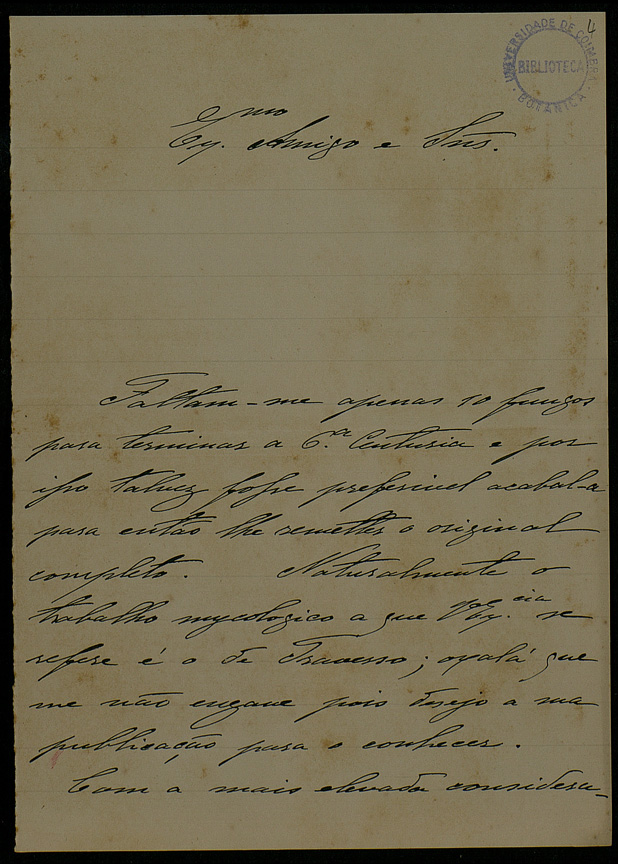 4
UNIVERSIDADE DE COIMBRA
BIBLIOTECA
BOTANICA
Exmo
Amigo e Snr.
Faltam-me apenas 10 fungos
para terminar a 6.ª Centuria e por
isso talvez fosse preferivel acabal-a
para então lhe remetter o original
completo. Naturalmente o
trabalho mycologico a que V. Ex.cia se
refere é o de Traverso; oxalá que
me não engane pois desejo a sua
publicação para o conhecer.
Com a mais elevada considera-